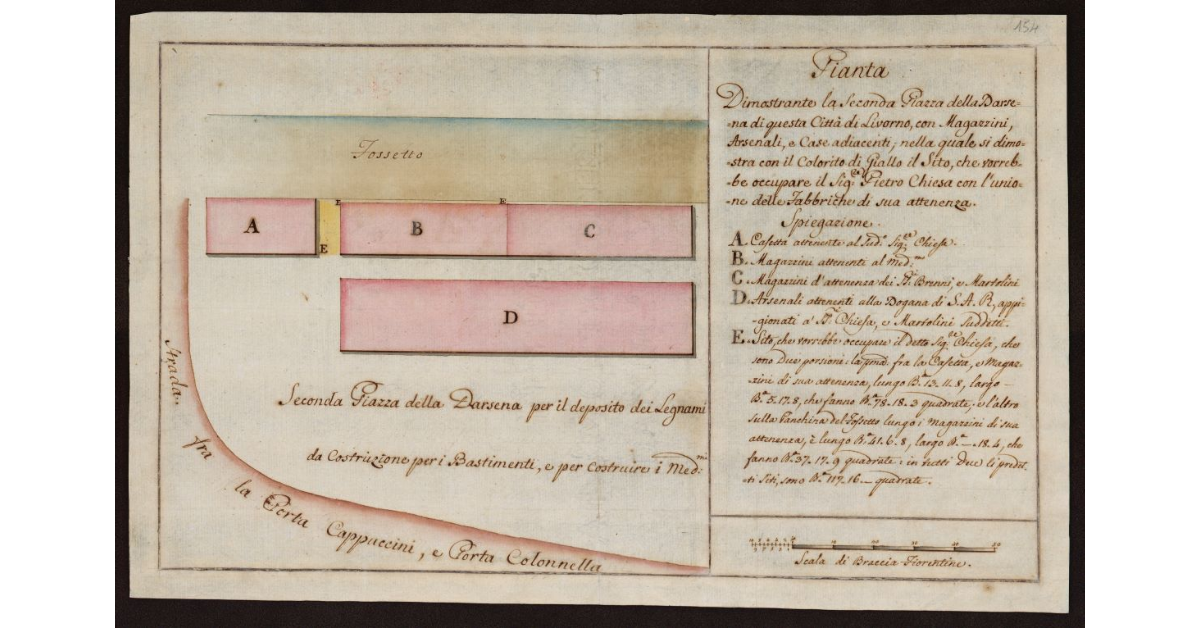 154
Pianta
Dimostrante la Seconda Piazza della Darse-
-na di questa Città di Livorno, con Magazzini,
Arsenali, e Case adiacenti, nella quale si dimo-
stra con il Colorito di Giallo il Sito, che vorreb-
-be occupare il Sig.re Pietro Chiesa con l'unio-
-ne delle Fabbriche di sua attenenza.
Spiegazione.
A. Casetta attenente al Sud.o Sig.re Chiesa.
B. Magazzini attenenti al Med.mo
C. Magazzini d'attenenza dei SS.ri Brenni, e Martolini
D. Arsenali attenenti alla Dogana di S. A. R. appi-
-gionati a' SS.ri Chiesa, e Martolini suddetti.
E. Sito, che vorrebbe occupare il detto Sig.re Chiesa, che
sono Due porzioni: la p.ma fra la Casetta, e Magaz-
zini di sua attenenza, lungo B.a 13. 11. 8, largo -
B.a 5. 17. 8, che fanno B.a 78. 18. 3 quadrate, e l'altro
sulla Panchina del Fossetto lungo i Magazzini di sua
attenenza, è lungo B.a 41. 6. 8, largo B.a —. 18. 4, che
fanno B.a 37. 17. 9 quadrate: in tutti Due li predet-
-ti Siti, sono B.a 117. 16. — quadrate.
Fossetto
A
E
E
E
B
C
D
Seconda Piazza della Darsena per il deposito dei Legnami
da Costruzione per i Bastimenti, e per costruire i Med.mi
Strada
fra
la Porta Cappuccini, e Porta Colonnella
Scala di Braccia Fiorentine.